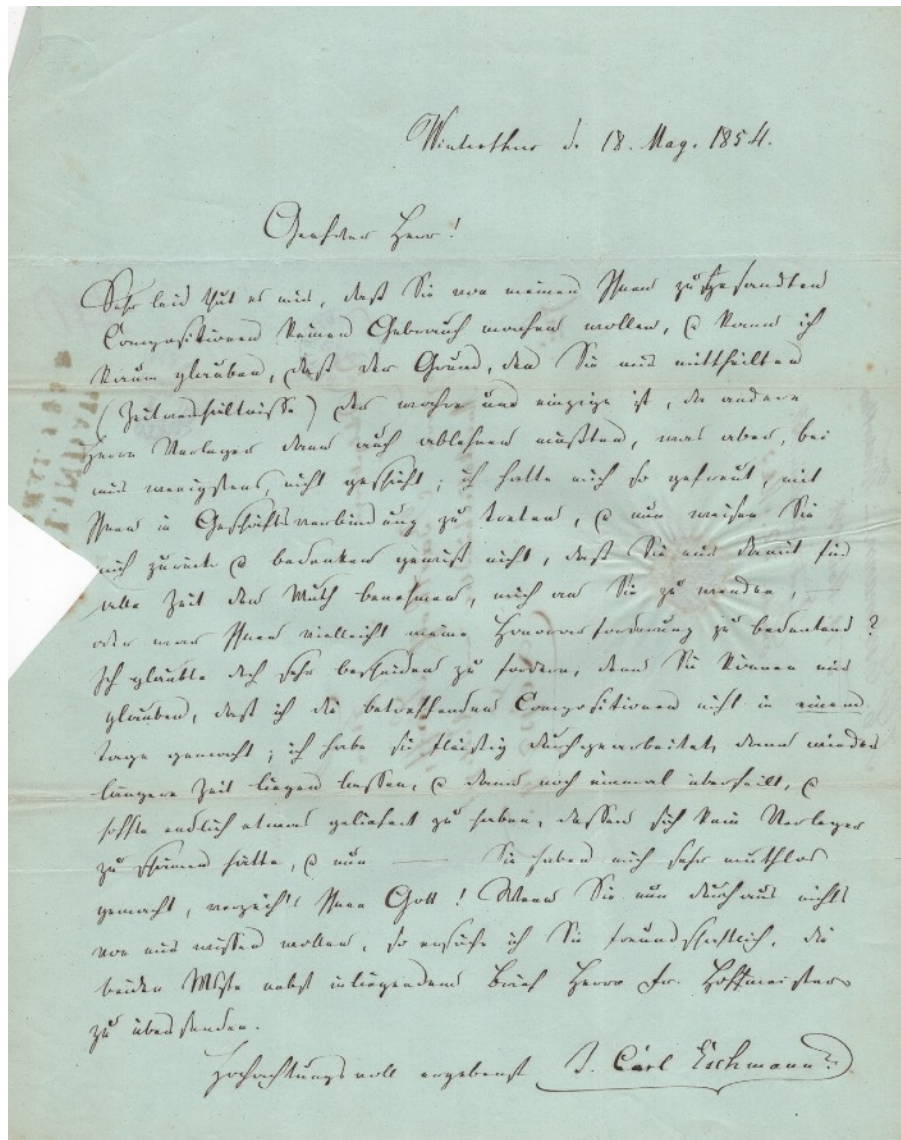 Winterthur d. 18. May. 1854.
Geehrter Herr!
Sehr leid thut es mir, daß Sie von meinen Ihnen zugesandten
Compositionen keinen Gebrauch machen wollen, & kann ich
kaum glauben, daß der Grund, den Sie mir mittheilten
(Zeitverhältnisse) der wahre und einzige ist, da andere
Herrn Verleger dann auch ablehnen müßten, was aber, bei
mir wenigstens, nicht geschieht; ich hatte mich so gefreut, mit
Ihnen in Geschäftsverbindung zu treten, & nun weisen Sie
mich zurück & bedenken gewiß nicht, daß Sie mir damit für
alle Zeit den Muth benehmen, mich an Sie zu wenden, —
oder war Ihnen vielleicht meine Honorarforderung zu bedeutend?
Ich glaubte doch sehr bescheiden zu fordern, denn Sie können mir
glauben, daß ich die betreffenden Compositionen nicht in einem
Tage gemacht; ich habe sie fleißig durchgearbeitet, dann wieder
längere Zeit liegen lassen, & dann noch einmal überfeilt, &
hoffte endlich etwas geliefert zu haben, dessen sich kein Verleger
zu schämen hätte, & nun —— Sie haben mich sehr muthlos
gemacht, verzeih's Ihnen Gott! Wenn Sie nun durchaus nichts
von mir wissen wollen, so ersuche ich Sie freundschaftlich, die
beiden Mspte nebst inliegendem Brief Herrn Fr. Hoffmeister
zu übersenden.
Hochachtungsvoll ergebenst J. Carl Eschmann